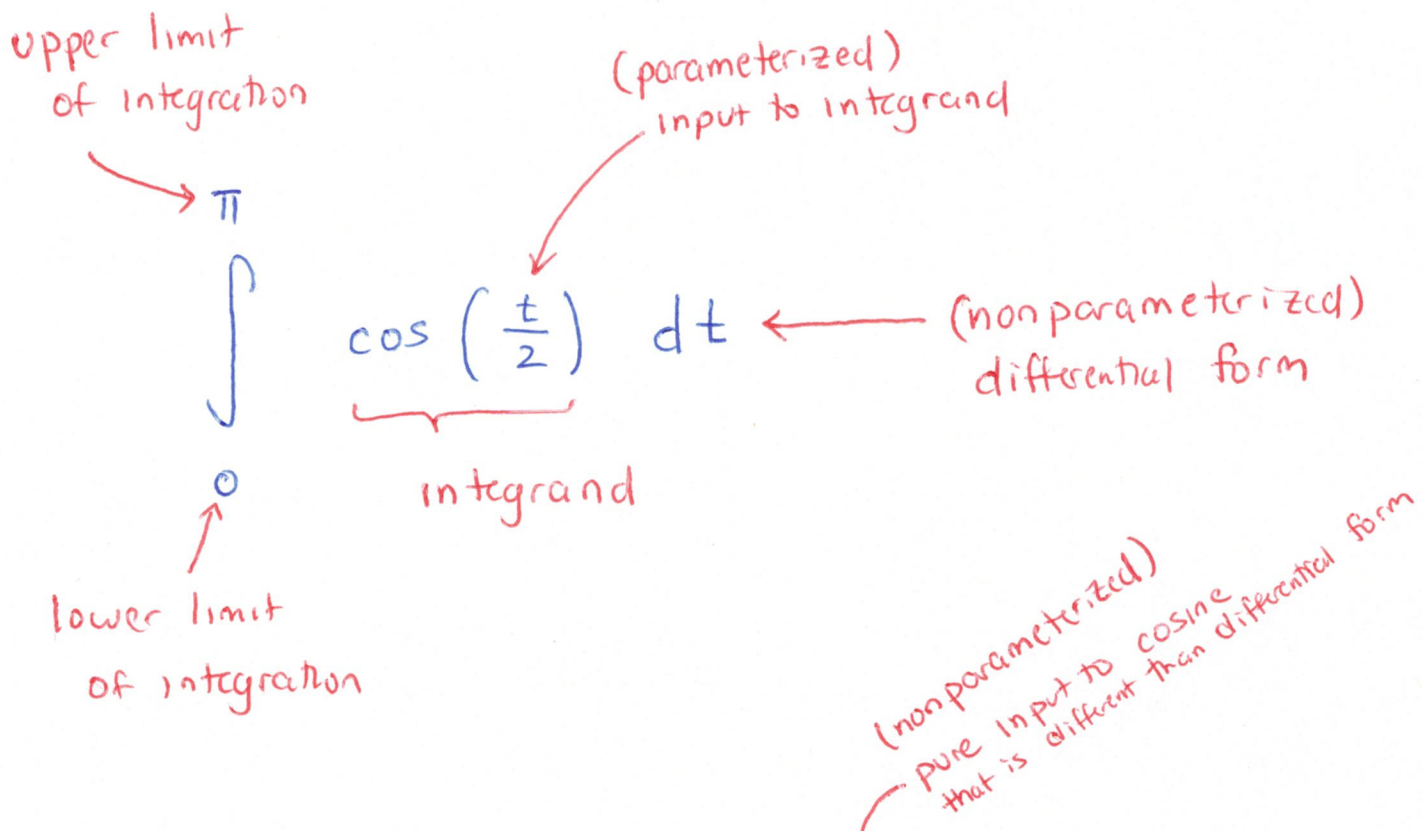 upper limit
of integration
(parameterized)
input to integrand
π
∫ cos (t/2) dt
(nonparameterized)
differential form
0
integrand
lower limit
of integration
(nonparameterized)
pure input to cosine
that is different than differential form